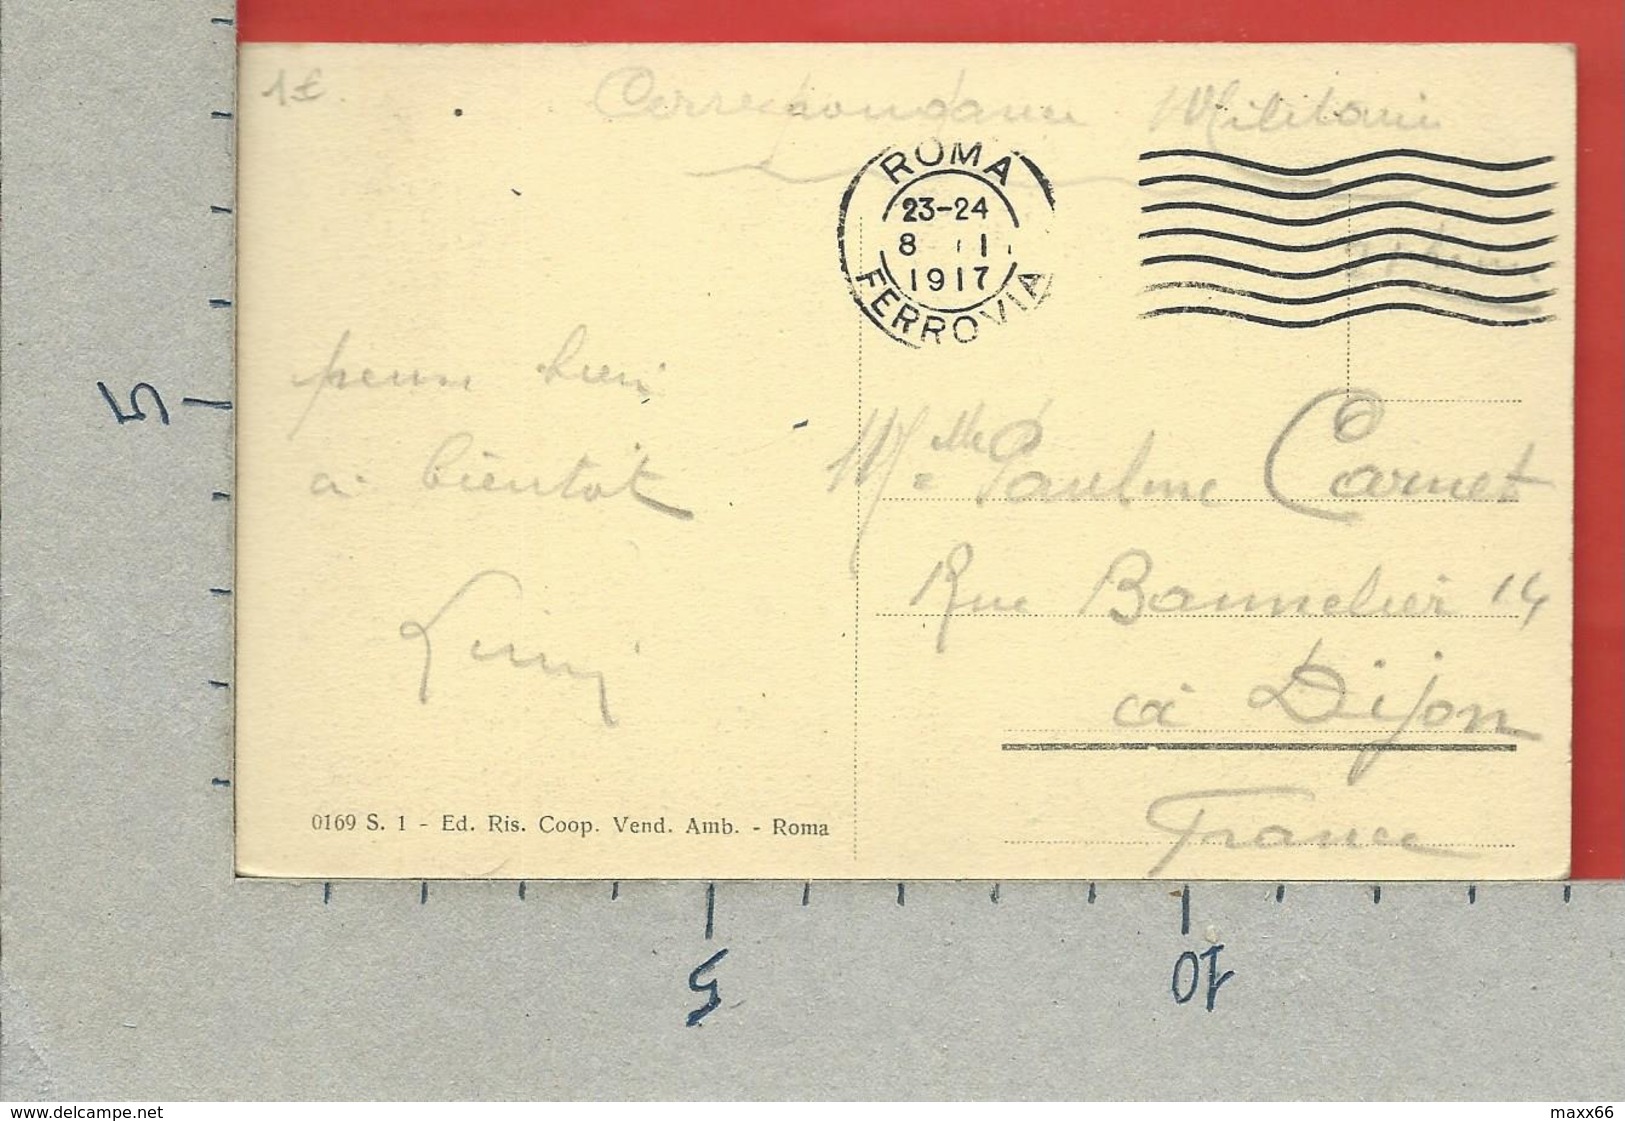 1€
Correspondance Militaire
ROMA
23-24
8 1
1917
FERROVIA
à bientôt
Melle Pauline Carnet
Rue Bannelier 14
à Dijon
France
0169 S. 1 - Ed. Ris. Coop. Vend. Amb. - Roma
5
5
10
www.delcampe.net
maxx66